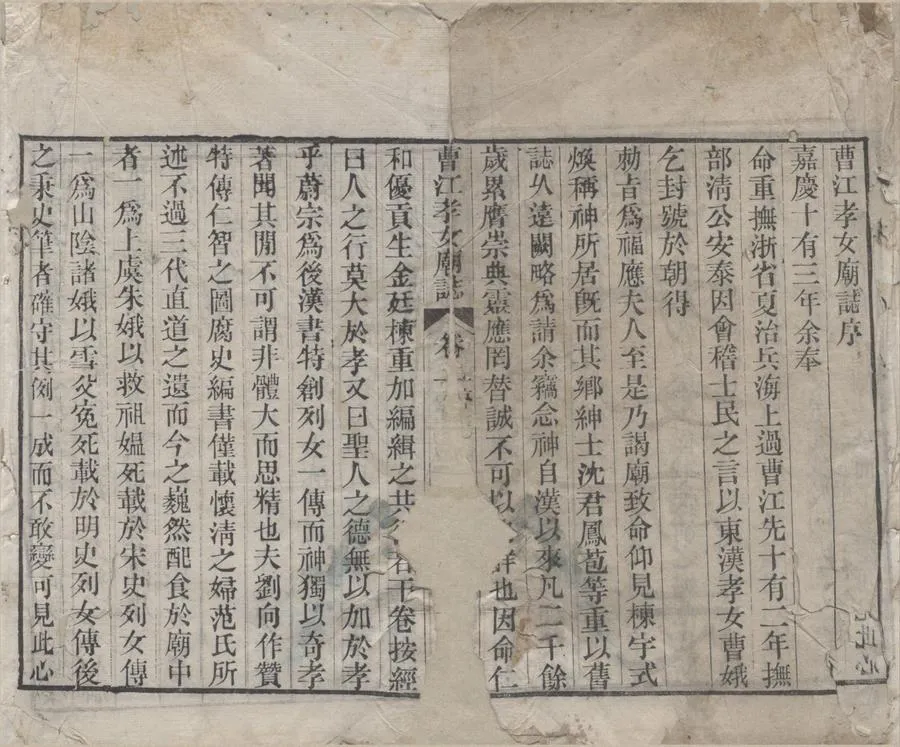 曹江孝女廟誌序
嘉慶十有三年余奉
命重撫浙省夏治兵海上過曹江先十有二年撫
部清公安泰因會稽士民之言以東漢孝女曹娥
乞封號於朝得
勅旨爲福應夫人至是乃謁廟致命仰見棟宇式
煥稱神所居旣而其鄉紳士沈君鳳苞等重以舊
誌乆遠闕略爲請余竊念神自漢以來凡二千餘
歲累膺崇典靈應罔替誠不可以也因命仁
曹江孝女廟誌 卷一
和優貢生金廷棟重加編緝之共若干卷按經
曰人之行莫大於孝又曰聖人之德無以加於孝
乎蔚宗爲後漢書特創列女一傳而神獨以奇孝
著聞其閒不可謂非體大而思精也夫劉向作贊
特傳仁智之圖腐史編書僅載懷淸之婦范氏所
述不過三代直道之遺而今之巍然配食於廟中
者一爲上虞朱娥以救祖媼死載於宋史列女傳
一爲山陰諸娥以雪父冤死載於明史列女傳後
之秉史筆者確守其例一成而不敢變可見此心